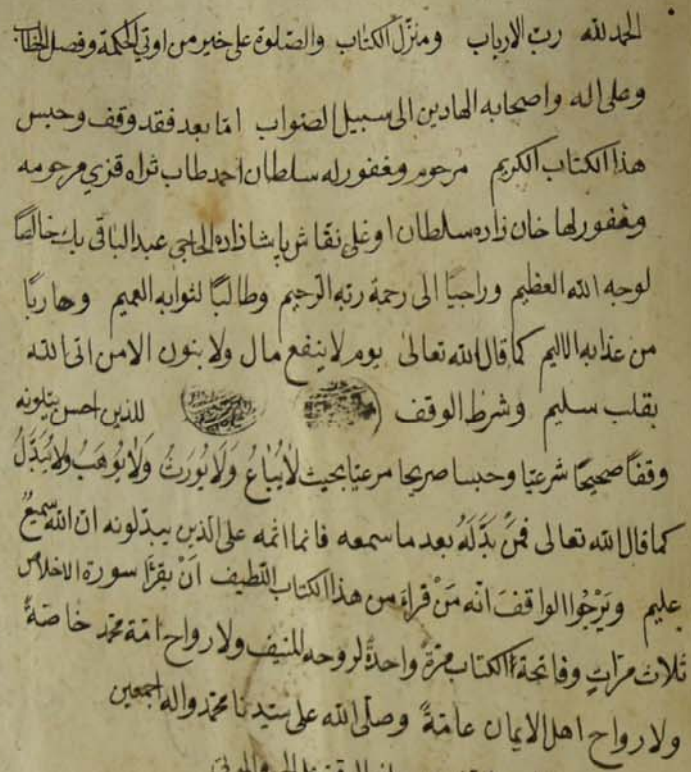 الحمد لله رب الارباب ومنزل الكتاب والصلوة على خير من اوتي الحكمة وفصل الخطاب
وعلى اله واصحابه الهادين الى سبيل الصواب امّا بعد فقد وقف وحبس
هذا الكتاب الكريم مرحوم ومغفور له سلطان احمد طاب ثراه قزي مرحومه
ومغفور لها خان زاده سلطان اوغلى نقّاش پاشا زاده الحاجى عبد الباقى بك خالصًا
لوجه الله العظيم وراجيًا الى رحمة ربّه الرحيم وطالبًا لثوابه العميم وهاربًا
من عذابه الاليم كما قال الله تعالى يوم لا ينفع مال ولا بنون الا من اتى الله
بقلب سليم وشرط الوقف للذين احسن يتلونه
وقفًا صحيحًا شرعيّا وحبسا صريحا مرعيّا بحيث لَا يُبَاعُ وَلَا يُورَثُ وَلَا يُوهَبُ ولا يُبَدَّلُ
كما قال الله تعالى فَمَنْ بَدَّلَهُ بعد ما سمعه فانما اثمه على الذين يبدّلونه ان الله سميعٌ
عليم ويَرْجُوا الواقفَ انّه مَنْ قراءَ من هذا الكتاب اللّطيف اَنْ يقرَأَ سورة الاخلاص
ثلاث مرّاتٍ وفاتحة الكتاب مرّةً واحدةً لروحه المنيف ولارواح امّة محمّد خاصّةً
ولارواح اهل الايمان عامّةً وصلّى الله على سيّدنا محمّد واله اجمعين